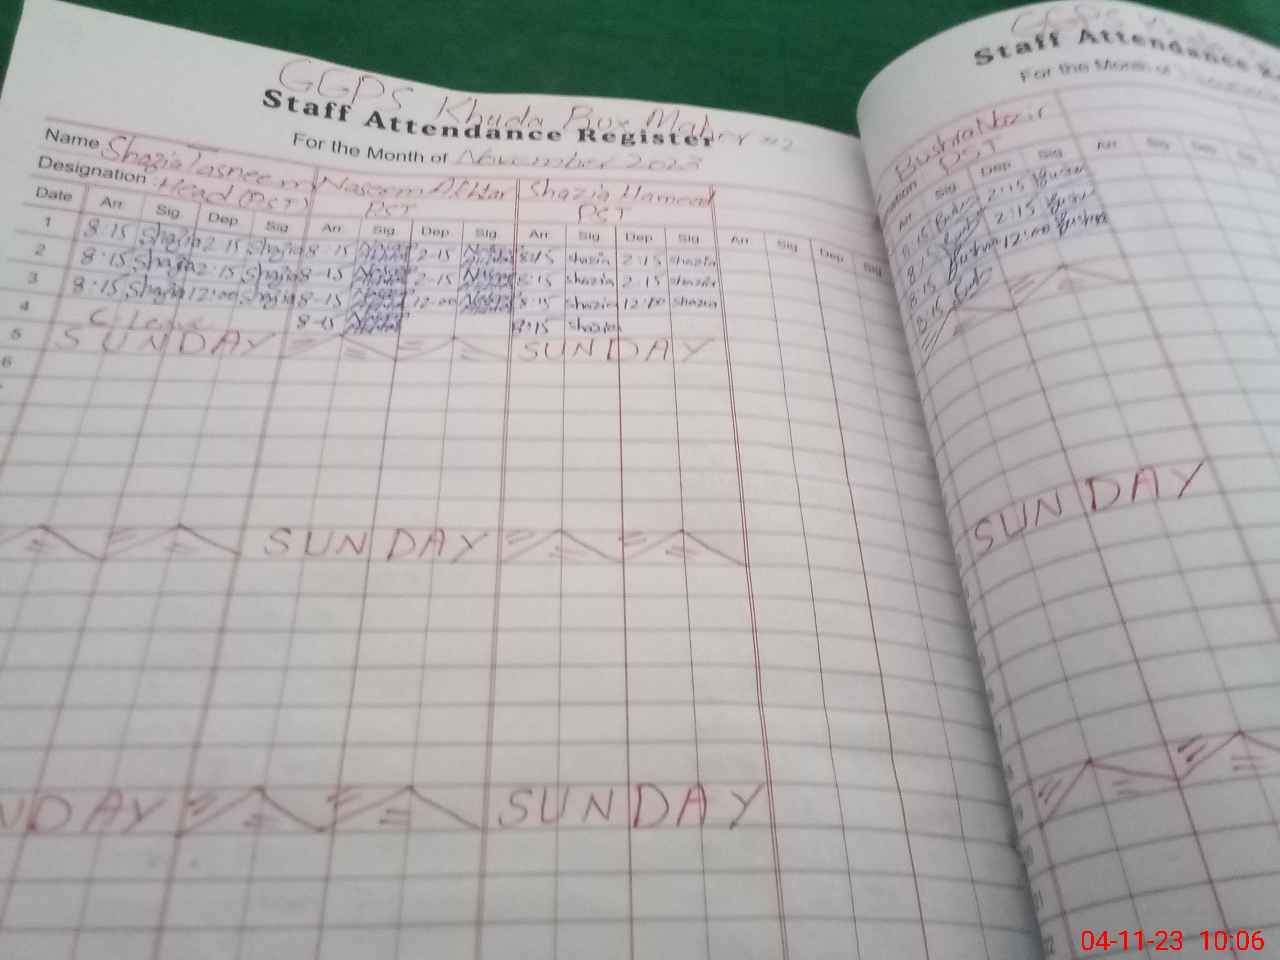 GGPS Khuda Bux Mahry #2
Staff Attendance Register
For the Month of November 2023
Name Shazia Tasneem Naseem Akhtar Shazia Hameed
Designation Head (PST) PST PST
Date Arr. Sig. Dep Sig Arr. Sig Dep. Sig. Arr. Sig Dep. Sig. Arr. Sig Dep Sig
1 8:15 Shazia 2:15 Shazia 8-15 Naseem Akhtar 2-15 Naseem Akhtar 8:15 shazia 2:15 shazia
2 8:15 Shazia 2:15 Shazia 8-15 Naseem Akhtar 2-15 Naseem Akhtar 8:15 shazia 2:15 shazia
3 8:15 Shazia 12:00 Shazia 8-15 Naseem Akhtar 12-00 Naseem Akhtar 8:15 shazia 12:00 shazia
4 C Leave 8-15 Naseem Akhtar 8:15 shazia
5 SUNDAY SUNDAY
6
SUNDAY
NDAY SUNDAY
GGPS
Staff Attendance Re
For the Month of
Bushra Nazir
nation PST
Arr Sig Dep Sig Arr Sig Sig Sig
8:15 Bushra 2:15 Bushra
8:15 Bushra 2:15 Bushra
8:15 Bushra 12:00 Bushra
8:15 Bushra
SUNDAY
04-11-23 10:06